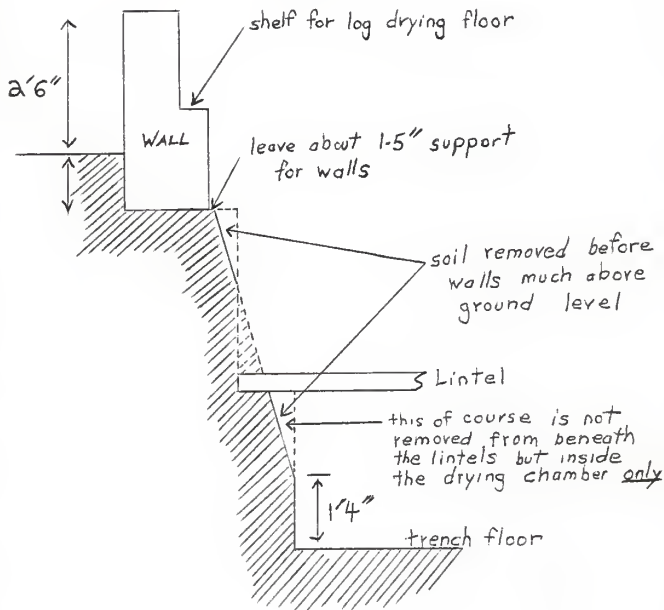 shelf for log drying floor
2'6"
WALL
leave about 1-5" support
for walls
soil removed before
walls much above
ground level
Lintel
this of course is not
removed from beneath
the lintels but inside
the drying chamber only
1'4"
trench floor